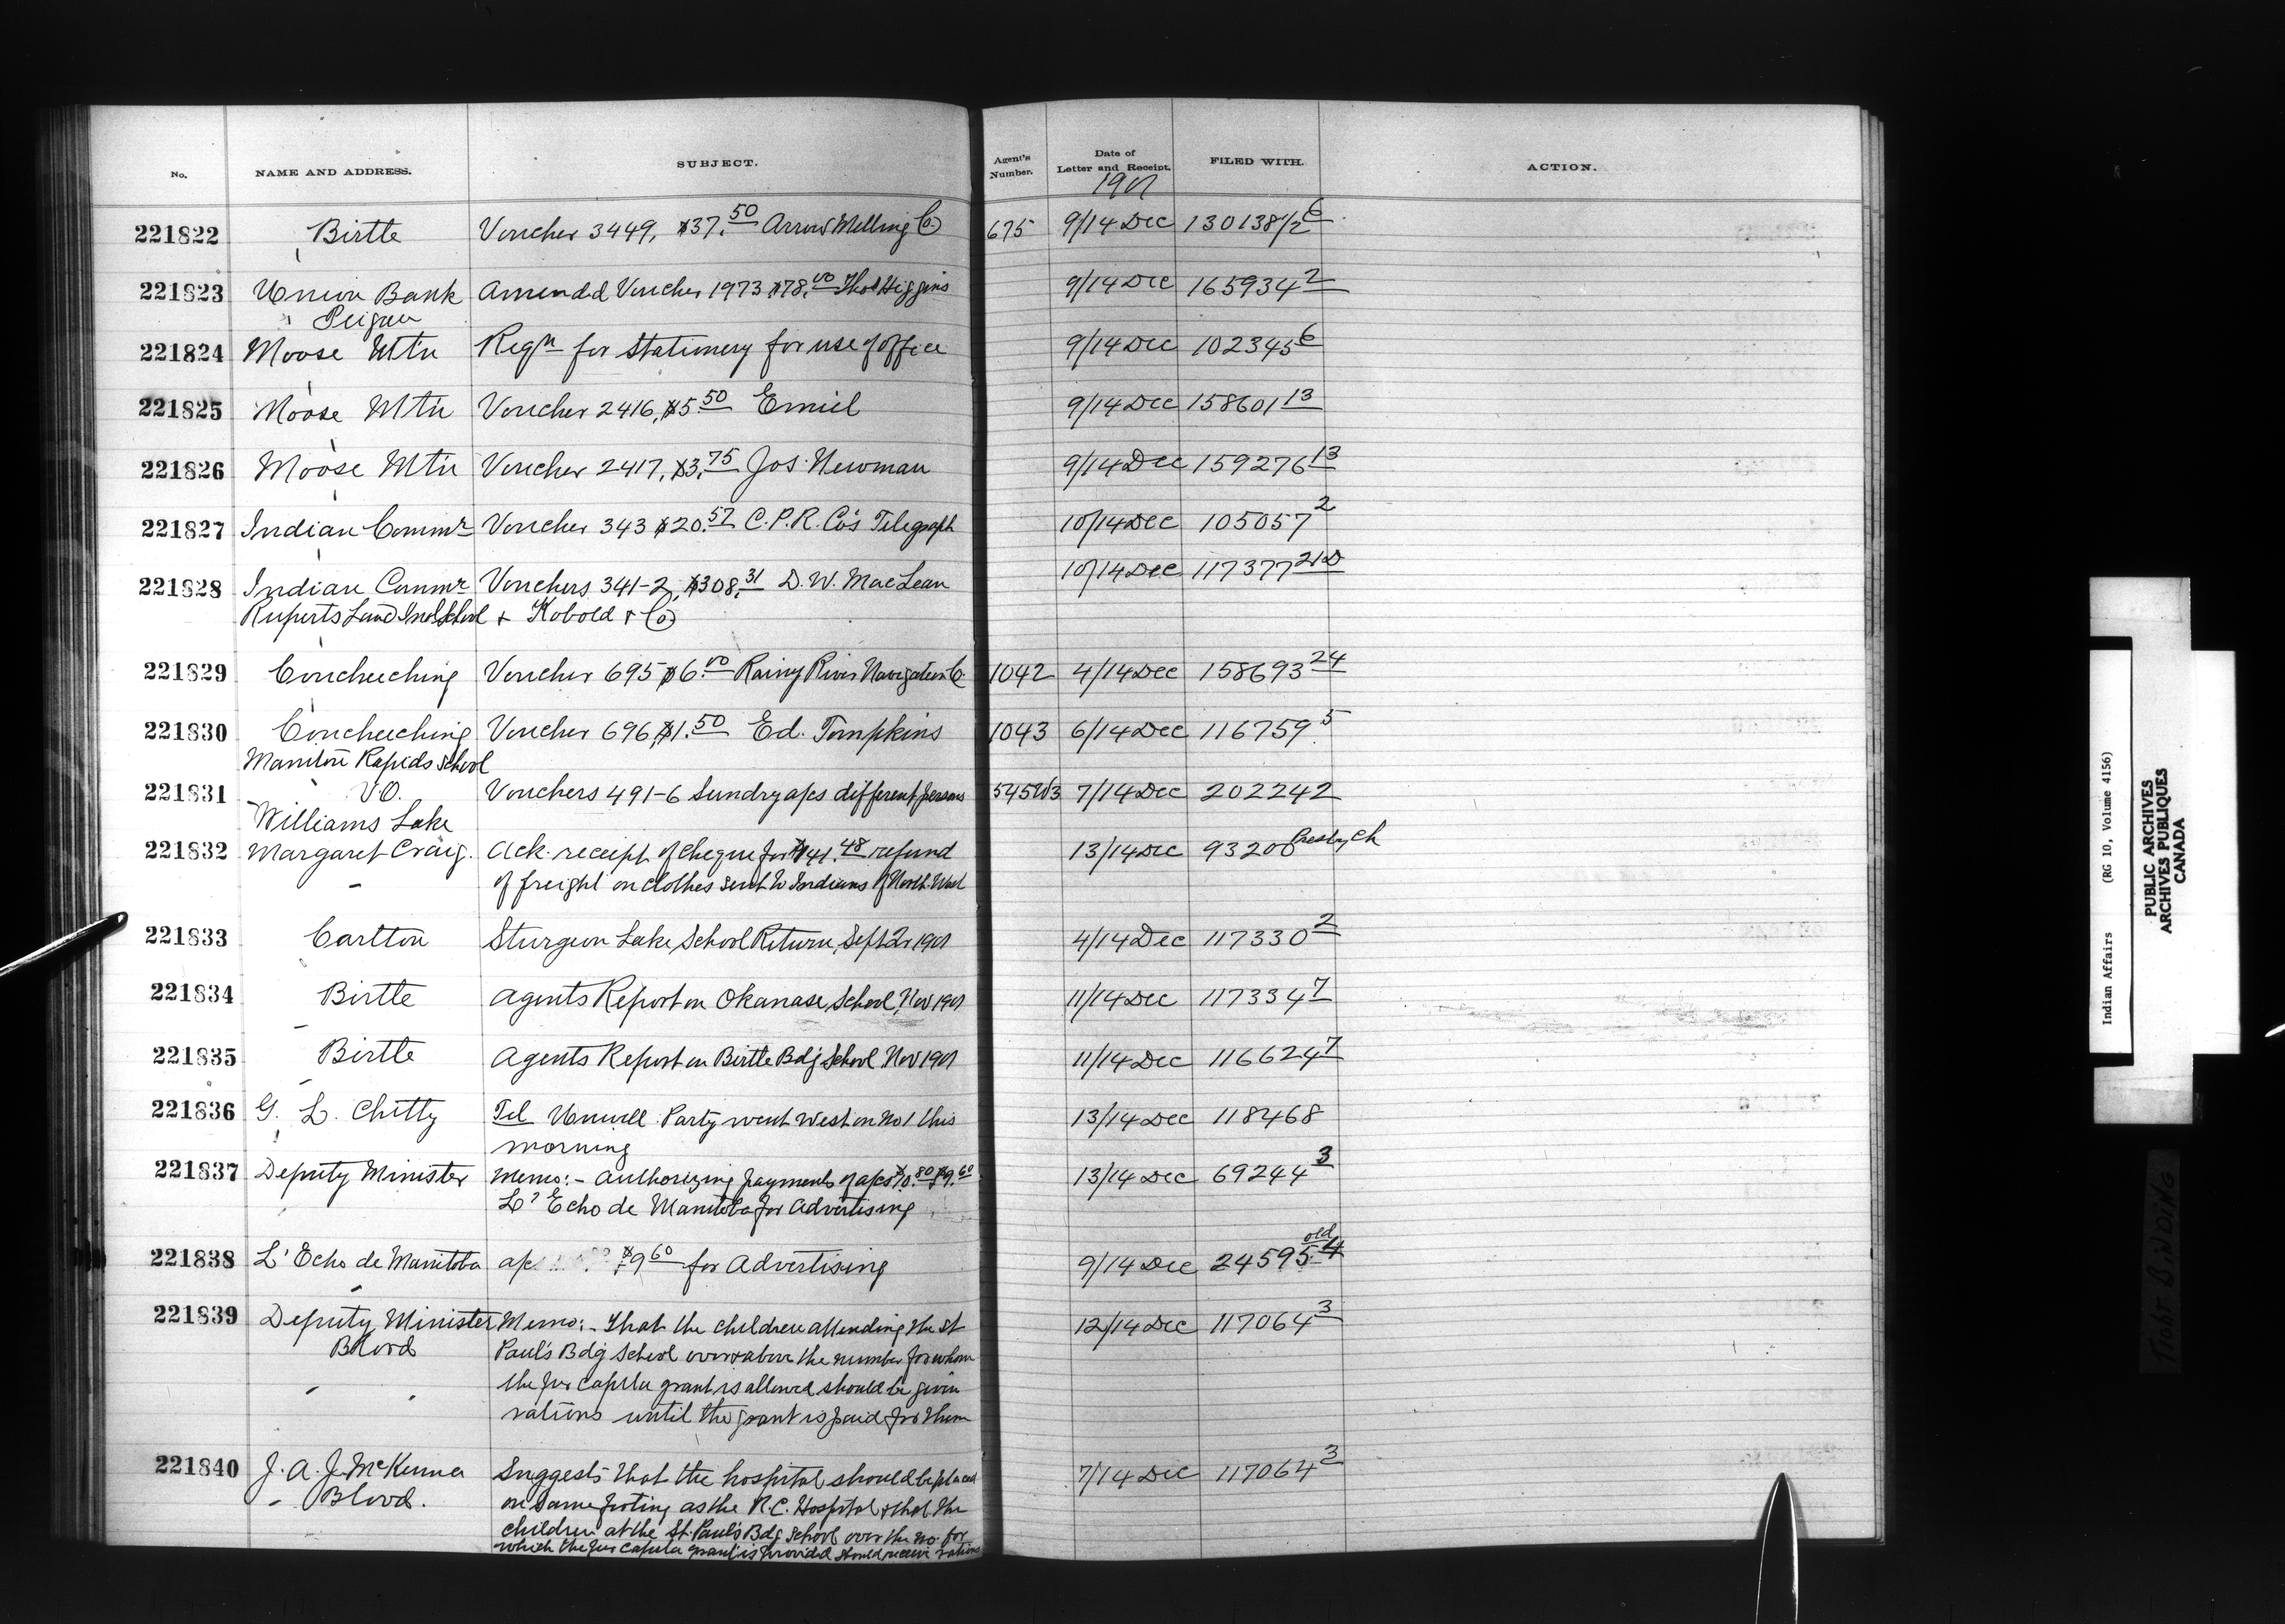 No. NAME AND ADDRESS. SUBJECT. Agent's Number. Date of Letter and Receipt. FILED WITH. ACTION.
1901
221822 Birtle Voucher 3449, $37.50 Arrow Milling Co 675 9/14 Dec 130138 1/2 6
221823 Union Bank Amended Voucher 1973 $78.00 Thos Higgins 9/14 Dec 165934 2
Peigan
221824 Moose Mtn Reqn for Stationery for use of office 9/14 Dec 102345 6
221825 Moose Mtn Voucher 2416, $5.50 Emiel 9/14 Dec 158601 13
221826 Moose Mtn Voucher 2417, $3.75 Jos. Newman 9/14 Dec 159276 13
221827 Indian Commr Voucher 343 $20.57 C.P.R. Co's Telegraph 10/14 Dec 105057 2
221828 Indian Commr Vouchers 341-2, $308.31 D. W. MacLean 10/14 Dec 117377 21D
Ruperts Land Ind School + Kobold & Co
221829 Coucheeching Voucher 695 $6.00 Rainy River Navigation Co 1042 4/14 Dec 158693 24
221830 Coucheeching Voucher 696, $1.50 Ed. Tompkins 1043 6/14 Dec 116759 5
Manitou Rapids School
221831 V.O. Vouchers 491-6 Sundry a/cs different persons 545W3 7/14 Dec 202242
Williams Lake
221832 Margaret Craig. Ack. receipt of cheque for $41.48 refund 13/14 Dec 93200 Presby Ch
of freight on clothes sent to Indians of North West
221833 Carlton Sturgeon Lake School Return, Sept Qr 1901 4/14 Dec 117330 2
221834 Birtle Agents Report on Okanase School, Nov 1901 11/14 Dec 117334 7
221835 Birtle Agents Report on Birtle Bdg School Nov 1901 11/14 Dec 116624 7
221836 G. L. Chitty Tel Unwell. Party went West on No 1 this 13/14 Dec 118468
morning
221837 Deputy Minister Memo:- Authorizing payments of a/cs $ .80 $9.60 13/14 Dec 69244 3
L'Echo de Manitoba for Advertising
old
221838 L'Echo de Manitoba a/c $9.60 for Advertising 9/14 Dec 24595 4
221839 Deputy Minister Memo:- That the children attending the St 12/14 Dec 117064 3
Blood Paul's Bdg School over & above the number for whom
the per capita grant is allowed should be given
rations until the grant is paid for them
221840 J. A. J. McKenna Suggests that the hospital should be placed 7/14 Dec 117064 3
Blood. on same footing as the R.C. Hospital & that the
children at the St. Paul's Bdg School over the no. for
which the per capita grant is provided should receive rations
Indian Affairs (RG 10, Volume 4156)
PUBLIC ARCHIVES
ARCHIVES PUBLIQUES
CANADA
TIGHT BINDING